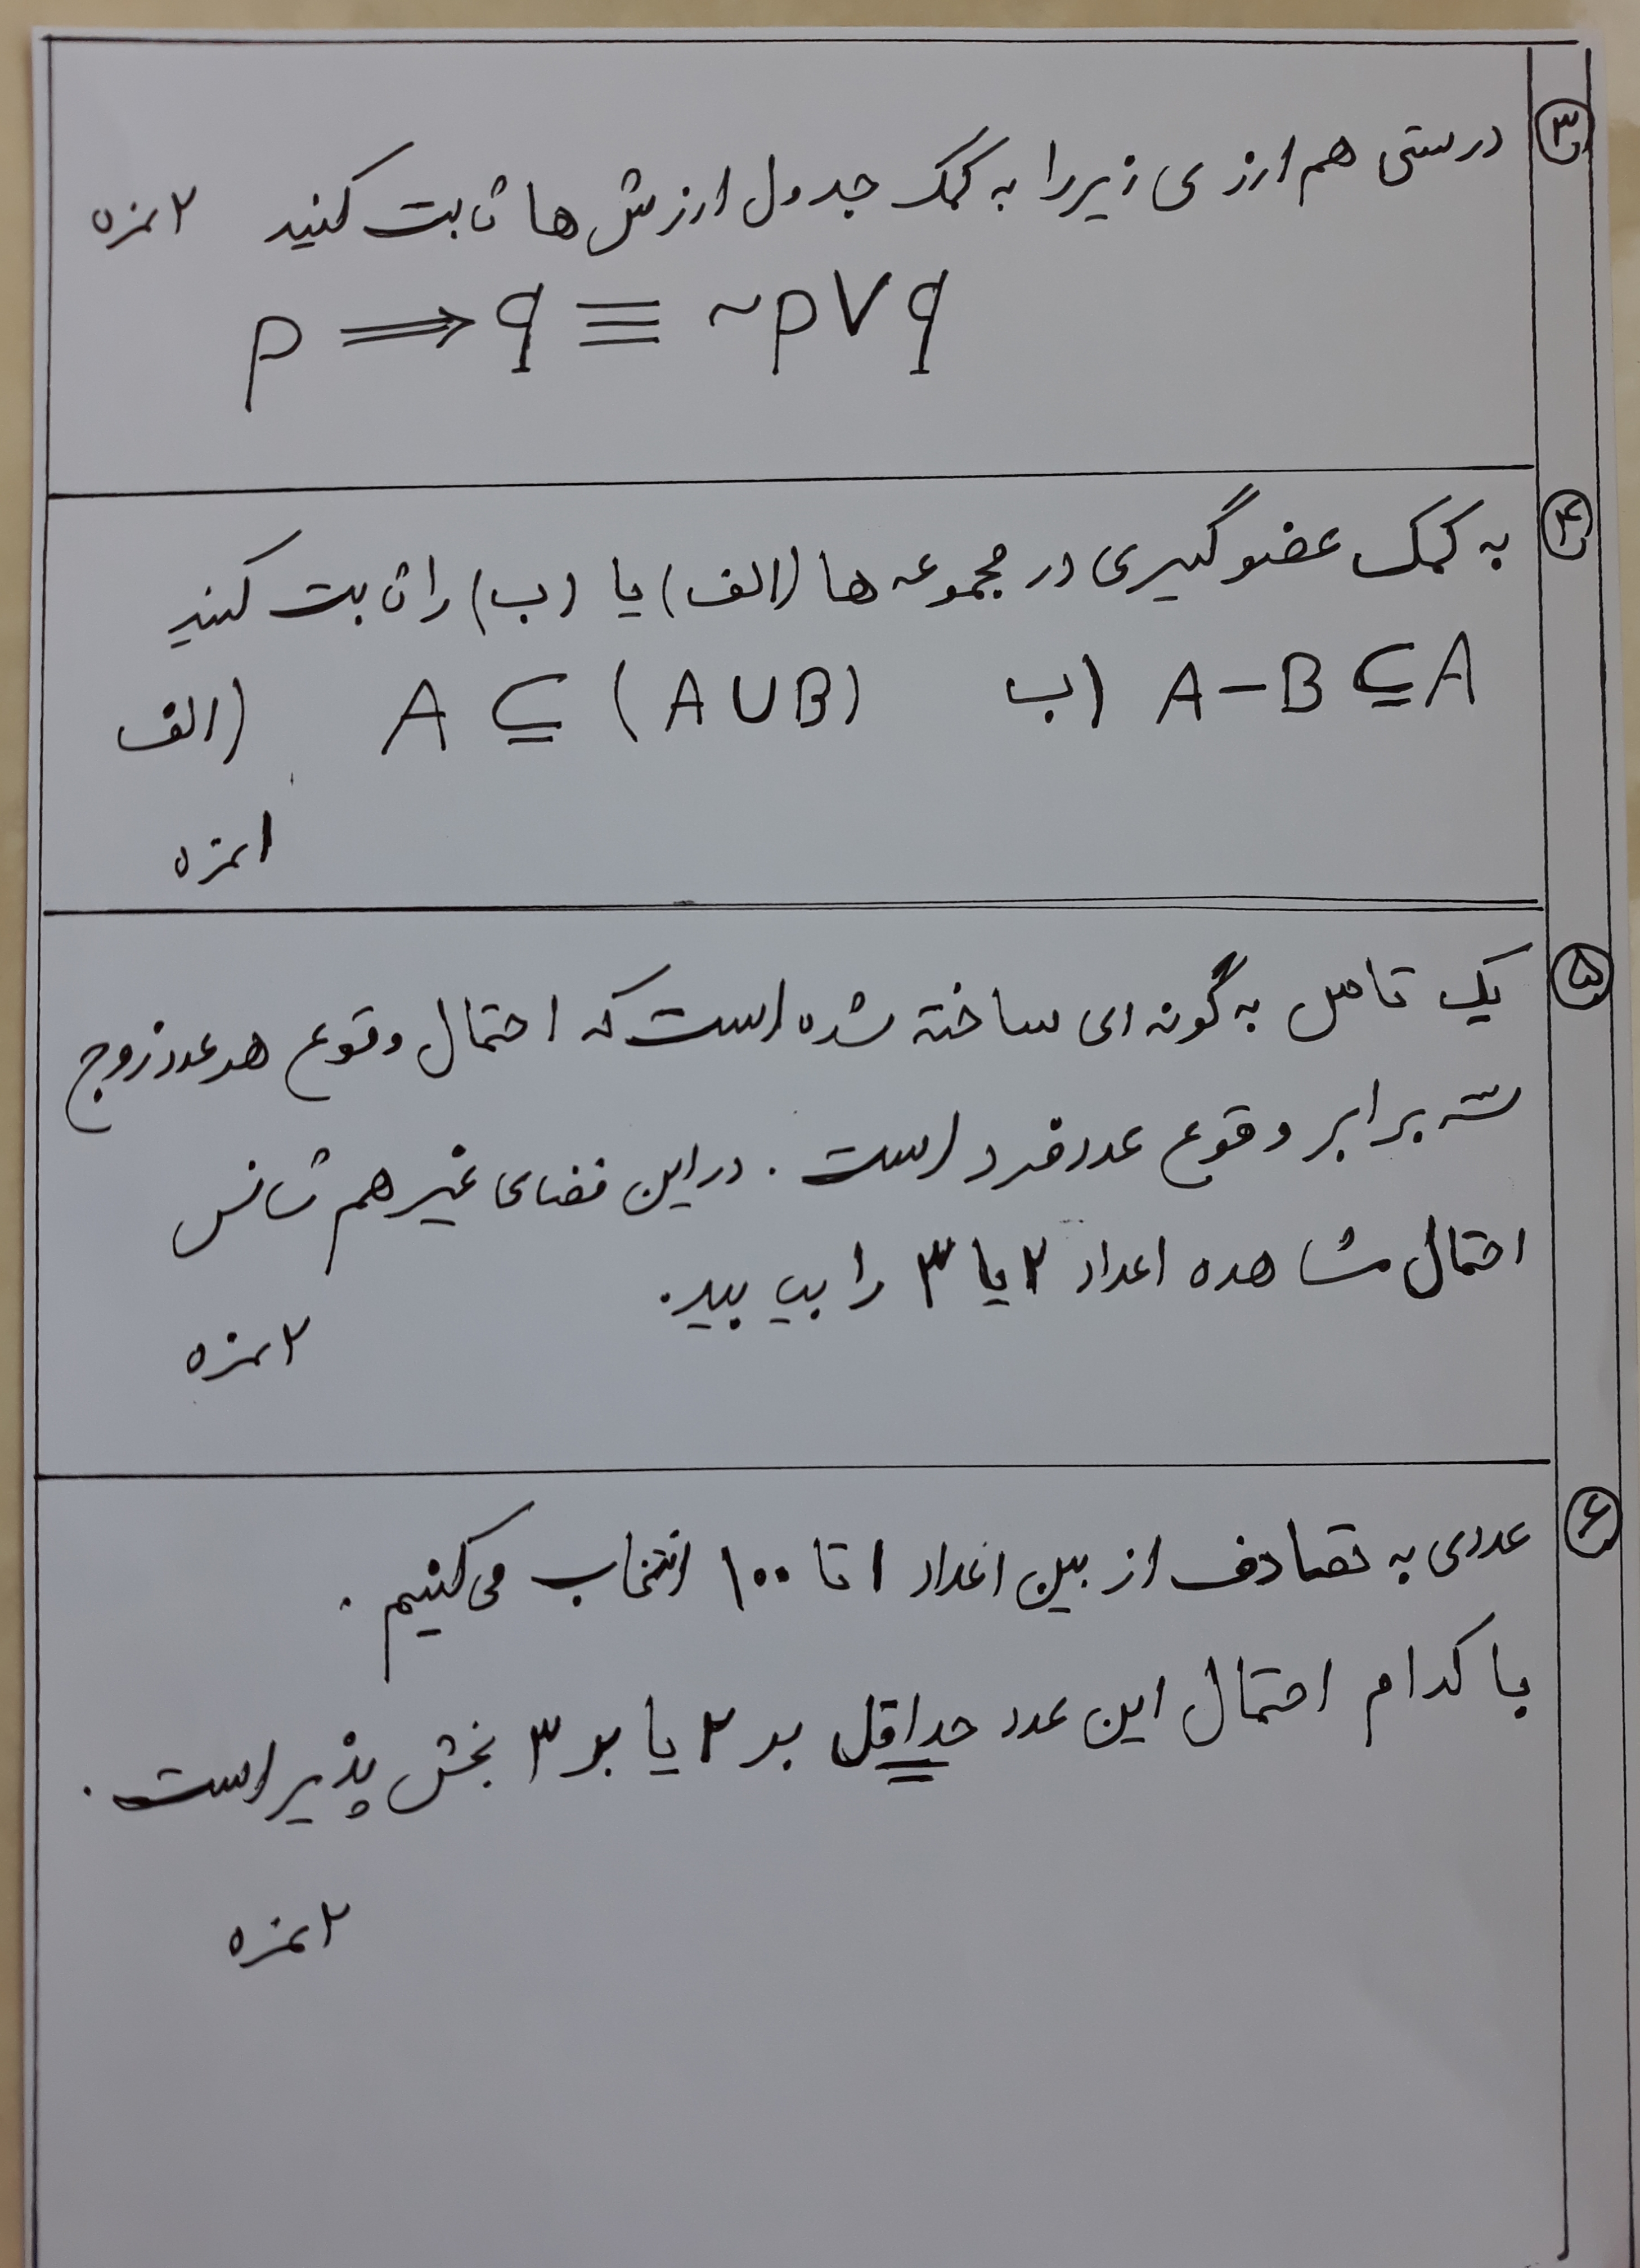 ۳
درستی هم ارزی زیر را به کمک جدول ارزش ها ثابت کنید ۲ نمره
p ⟹ q ≡ ~p∨q
۴
به کمک عضوگیری در مجموعه ها (الف) یا (ب) را ثابت کنید
الف) A ⊆ (A∪B) ب) A-B⊆A
۱ نمره
۵
یک تاس به گونه ای ساخته شده است که احتمال وقوع هر عدد زوج
سه برابر وقوع عدد فرد است . در این فضای غیر هم شانس
احتمال مشاهده اعداد ۲ یا ۳ را بیابید.
۲ نمره
۶
عددی به تصادف از بین اعداد ۱ تا ۱۰۰ انتخاب می کنیم .
با کدام احتمال این عدد حداقل بر ۲ یا بر ۳ بخش پذیر است .
۲ نمره